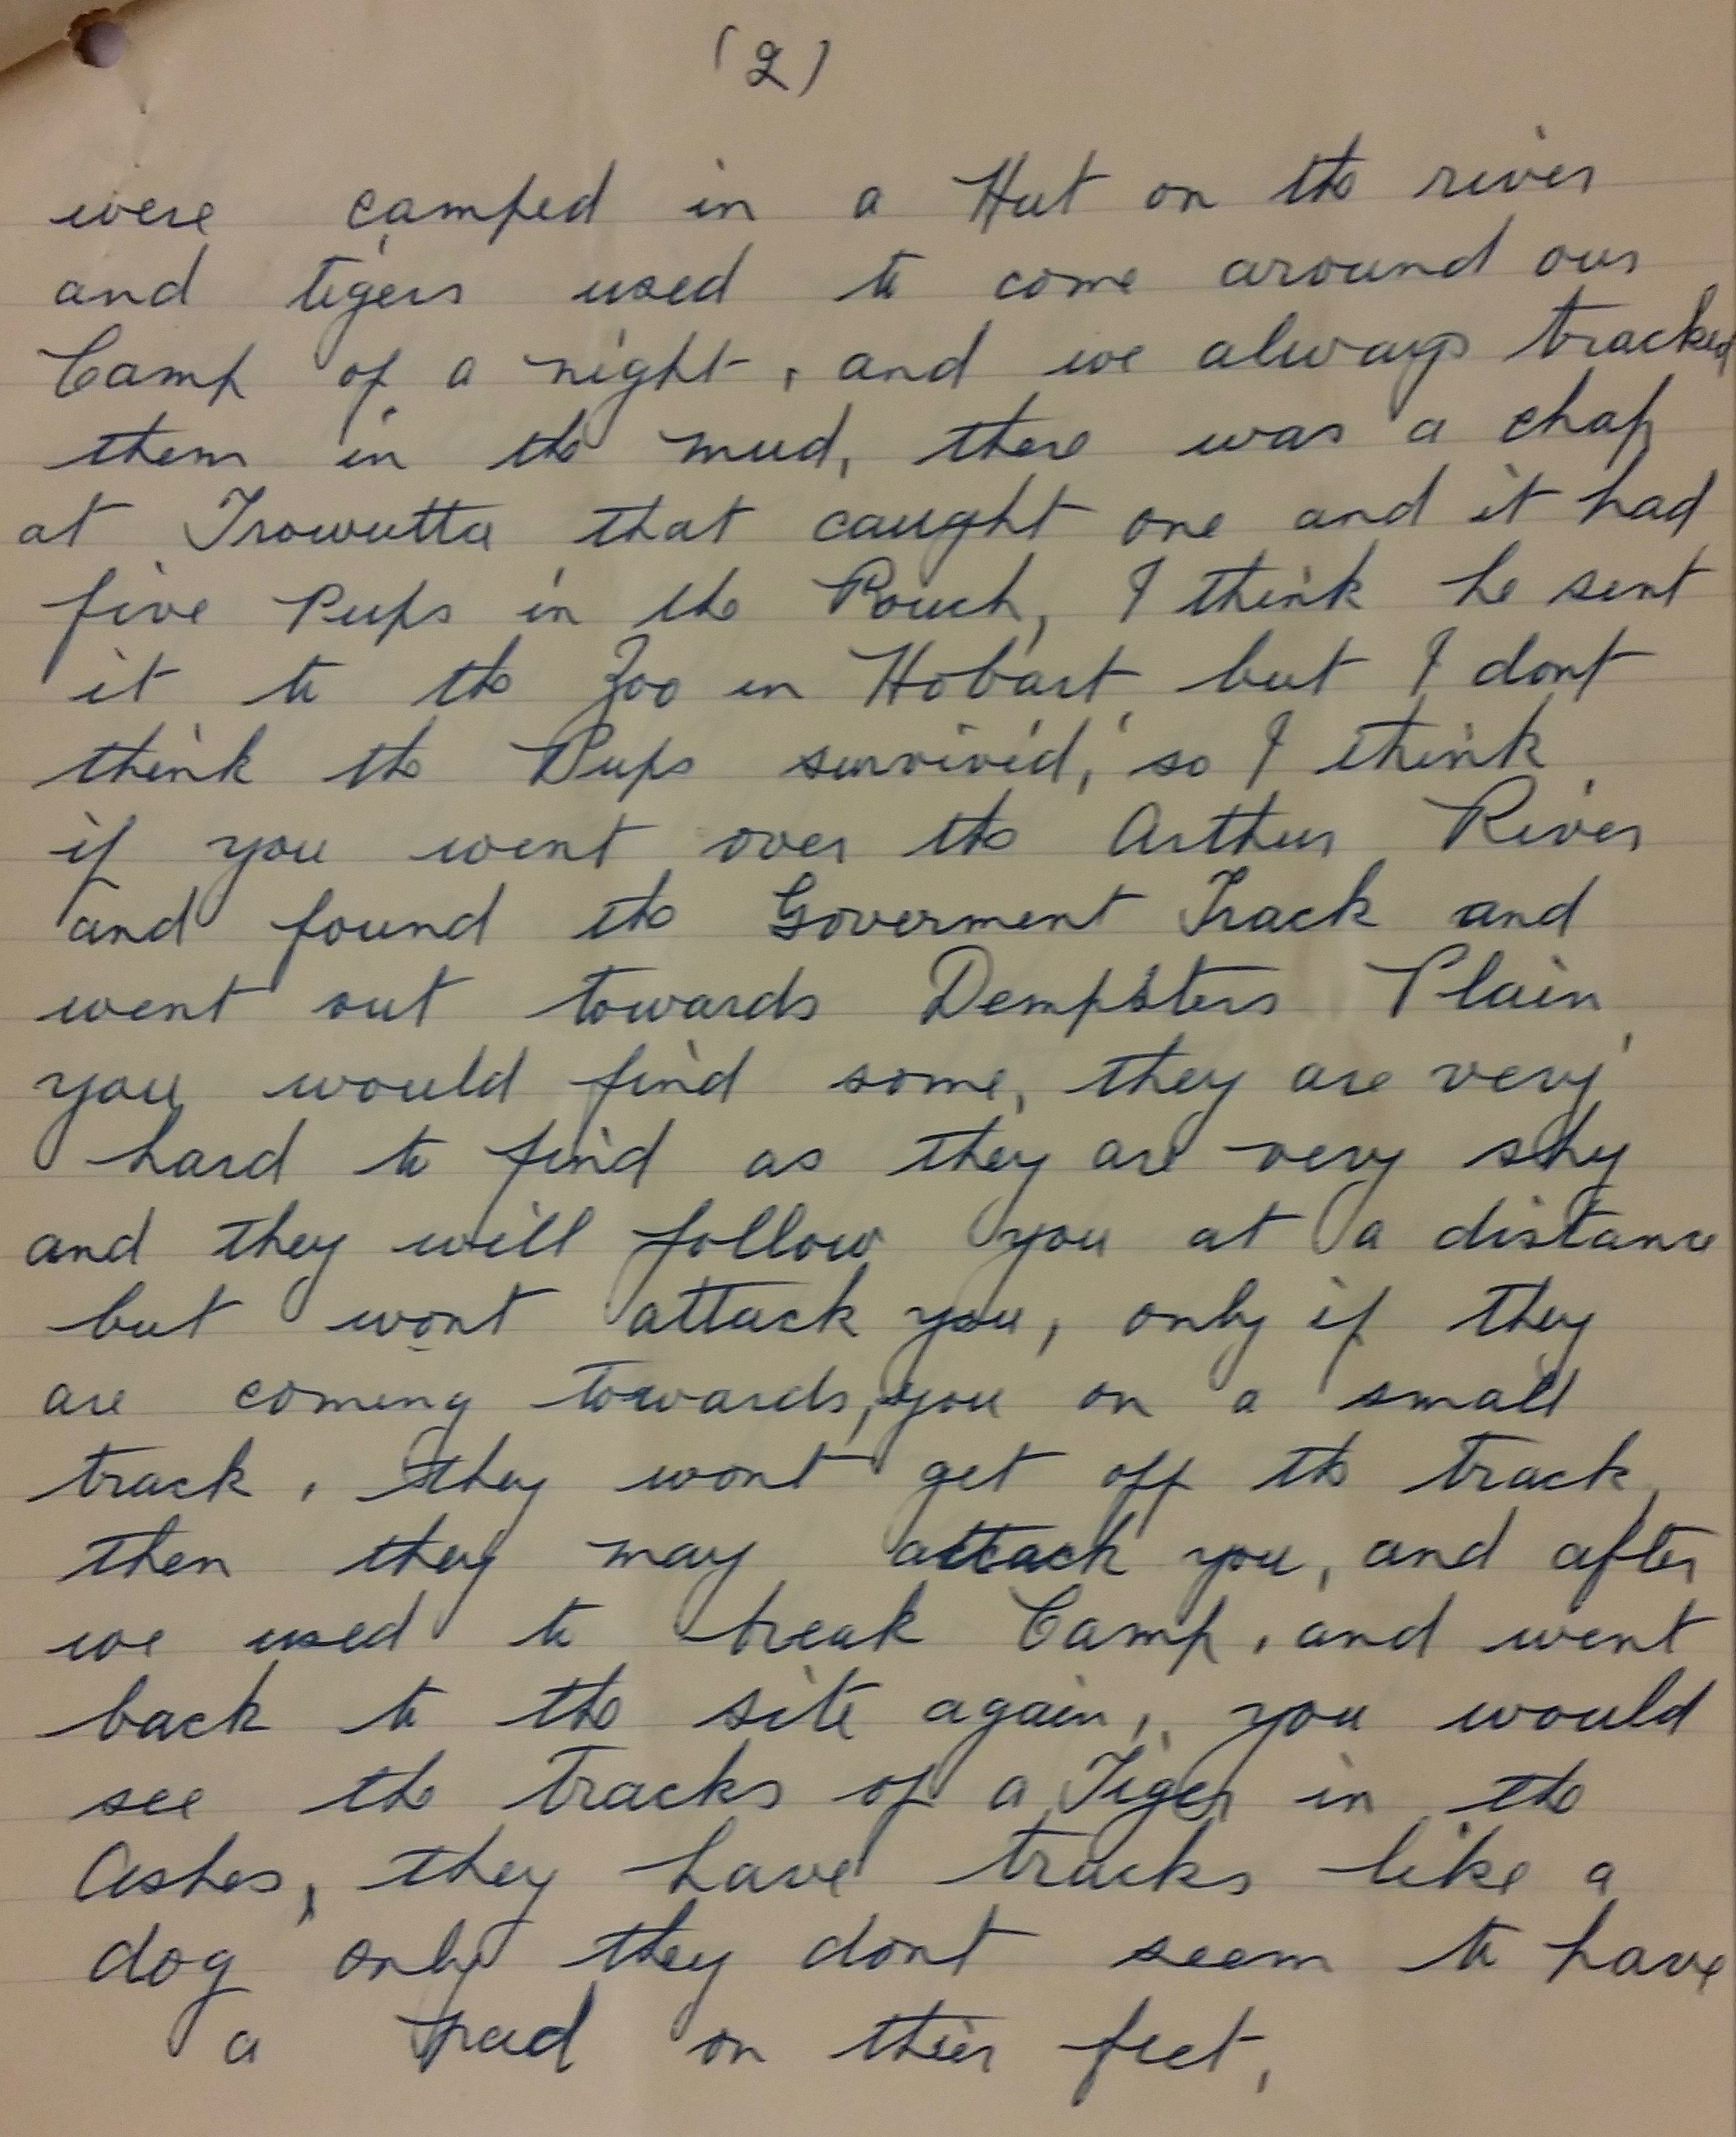 (2)
were camped in a Hut on the river
and tigers used to come around our
Camp of a night, and we always tracked
them in the mud, there was a chap
at Trowutta that caught one and it had
five Pups in the Pouch, I think he sent
it to the Zoo in Hobart, but I dont
think the Pups survivid, so I think
if you went over the Arthur River
and found the Goverment Track and
went out towards Dempsters Plain,
you would find some, they are very
hard to find as they are very shy
and they will follow you at a distance
but wont attack you, only if they
are coming towards, you on a small
track, they wont get off the track,
then they may attack you, and after
we used to break Camp, and went
back to the site again, you would
see the tracks of a Tiger in the
Ashes, they have tracks like a
dog only they dont seem to have
a pad on their feet,